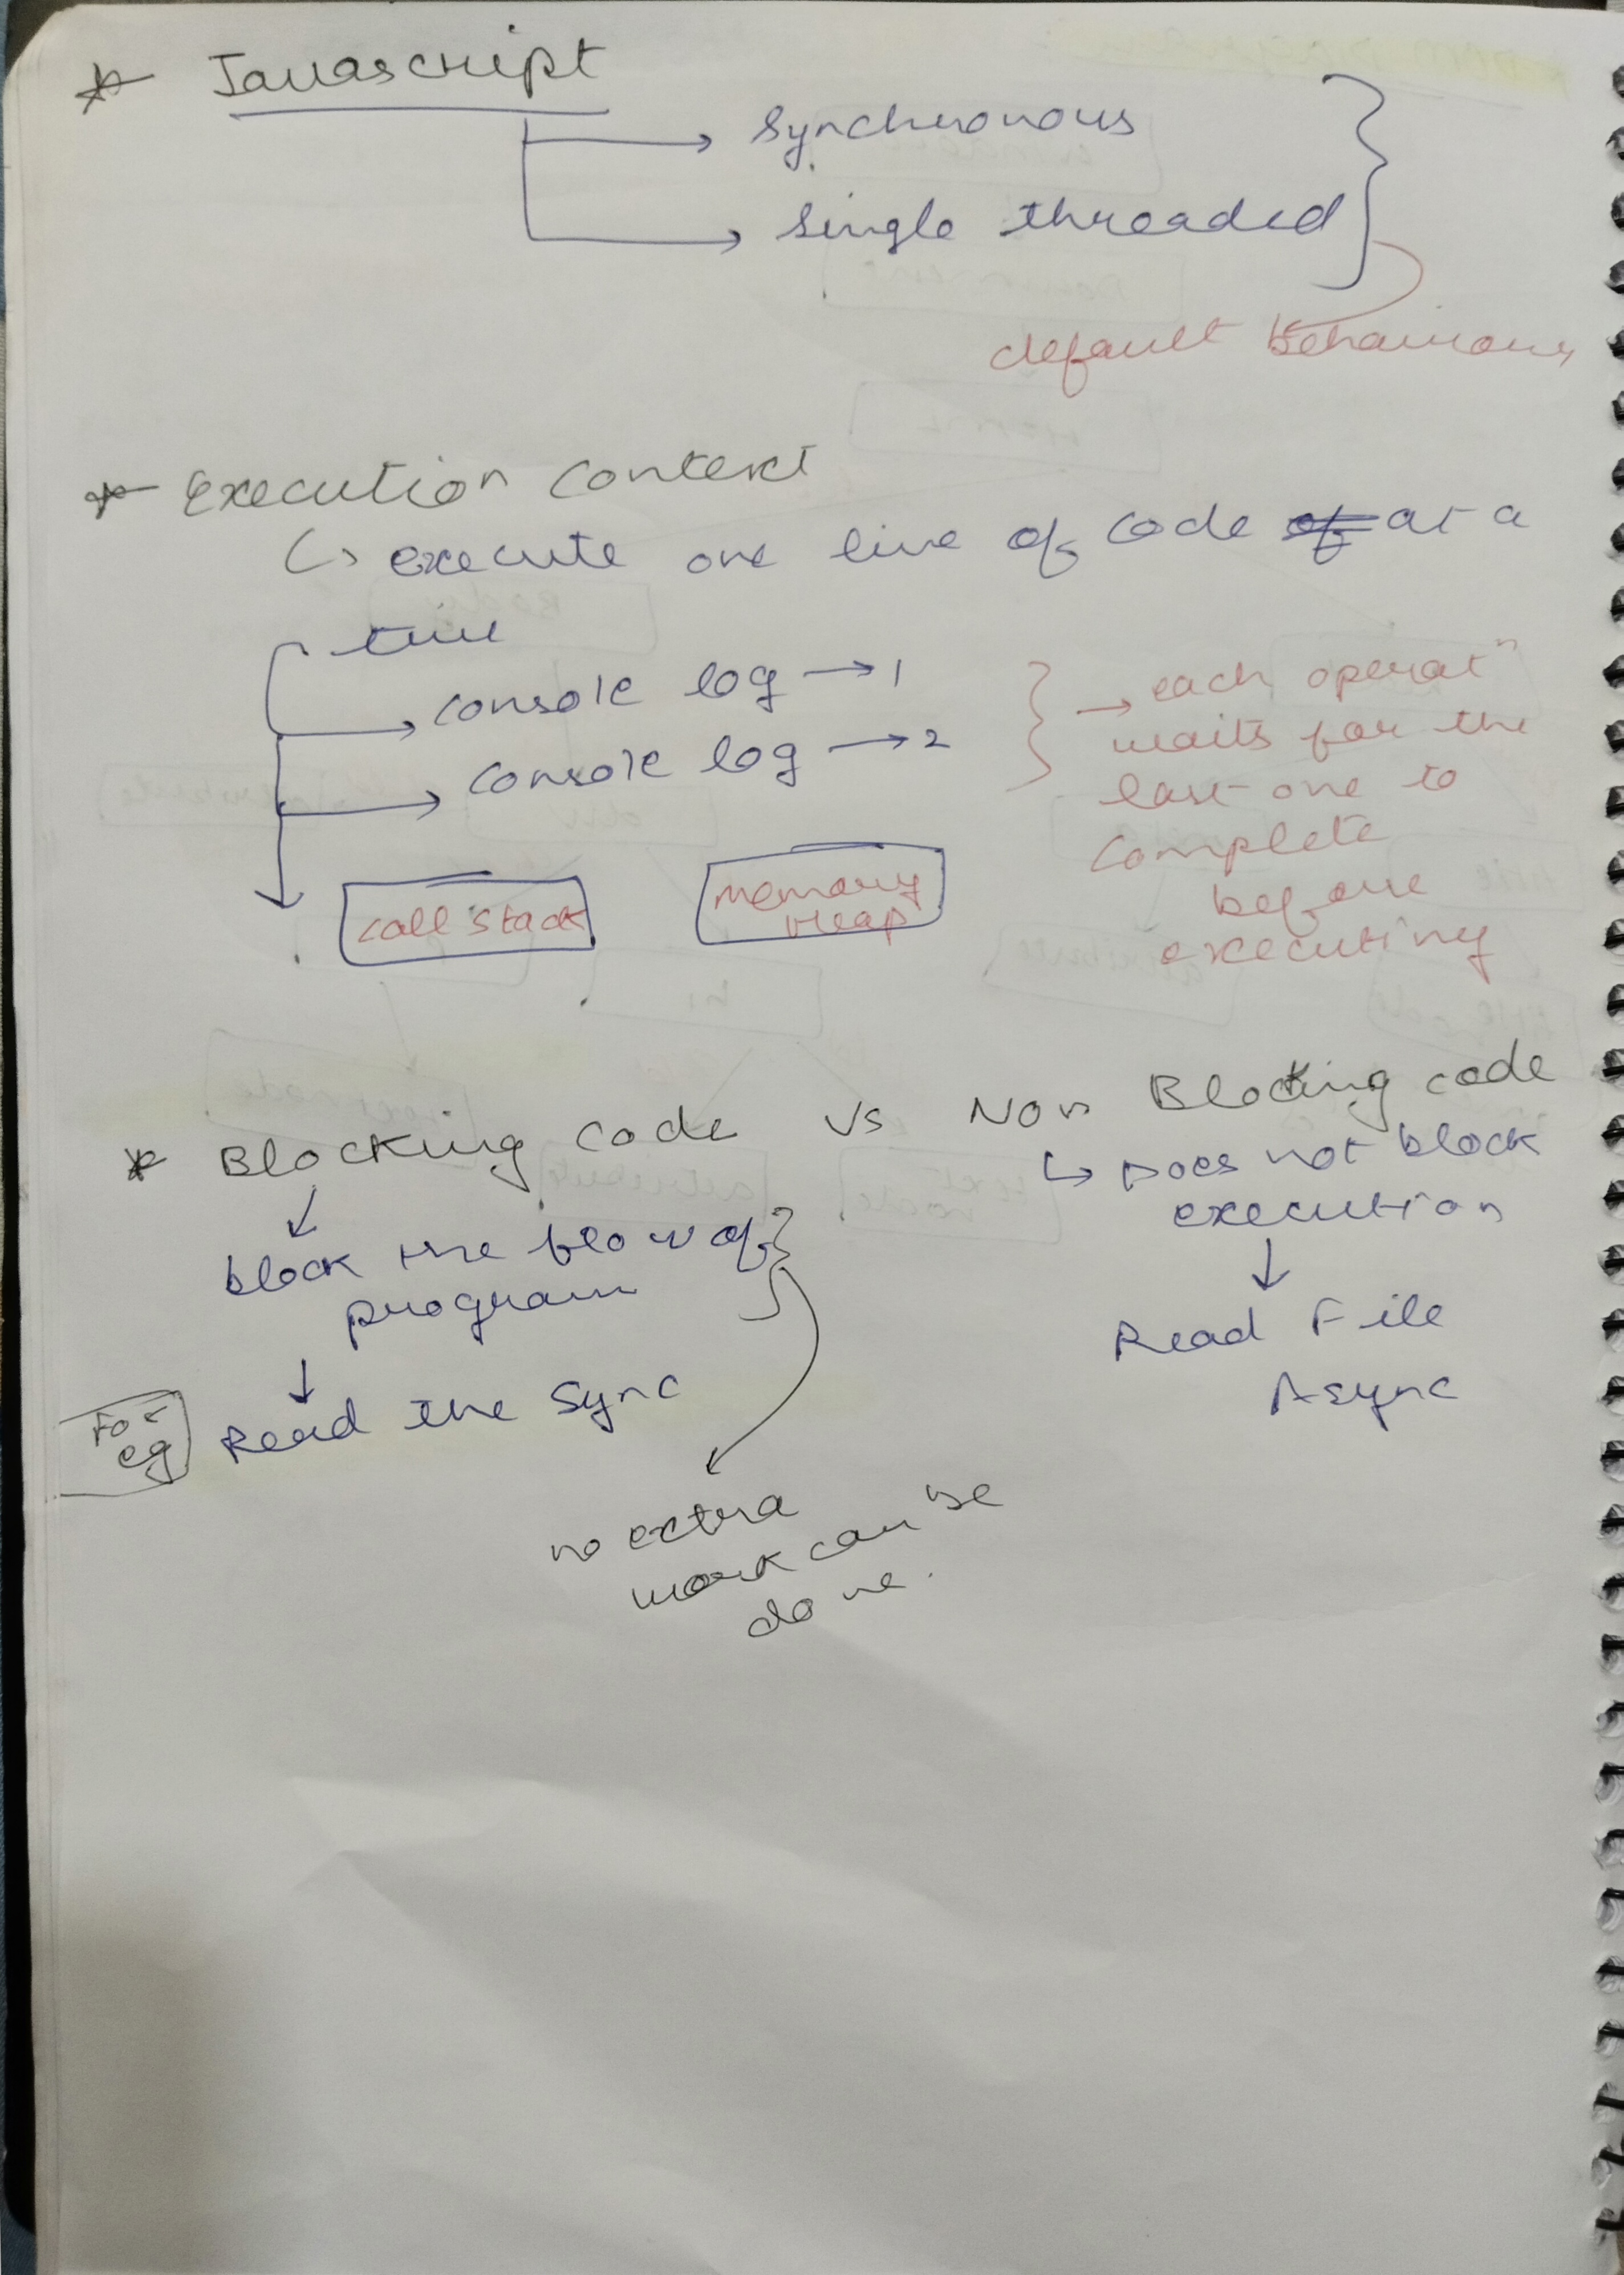 * Javascript
→ Synchronous
→ Single threaded
default Behaviour
* Execution context
↳ execute one line of code at a
time
→ console log → 1
→ console log → 2
→ each operatⁿ
waits for the
last one to
complete
before
executing
call stack
memory
Heap
* Blocking code vs Non Blocking code
↓
block the flow of
program
↳ Does not block
execution
↓
For
eg
Read the Sync
Read File
Async
no extra
work can be
done.